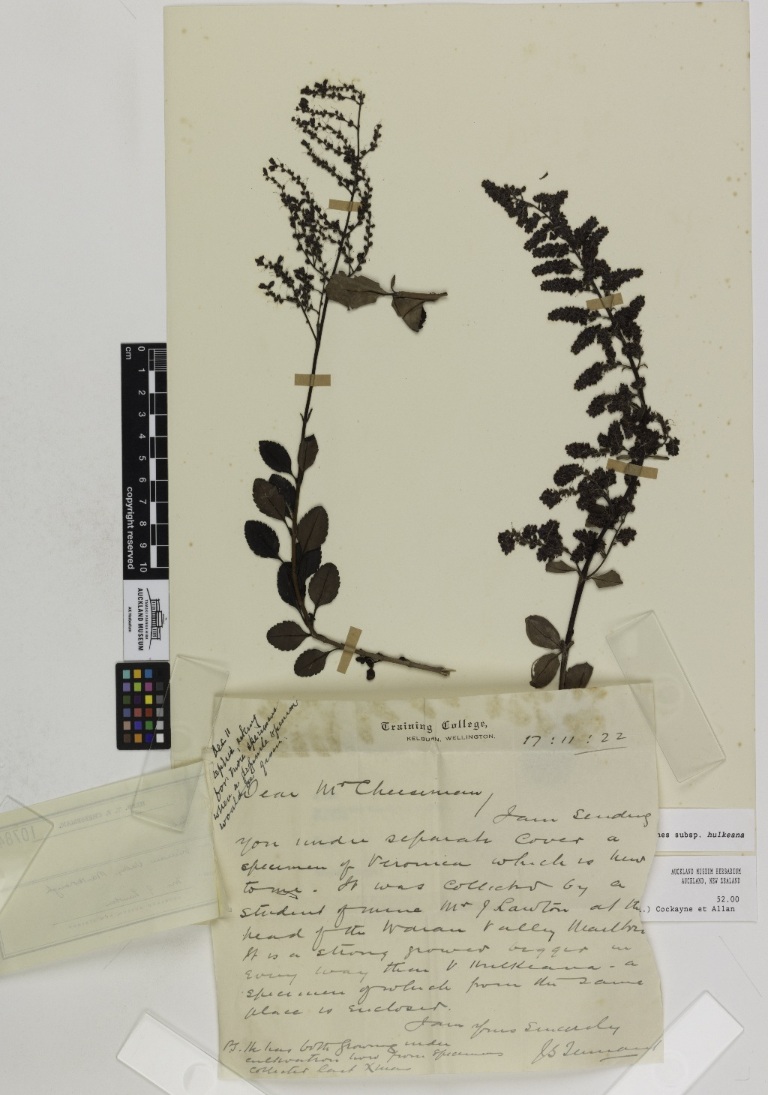 cm 0 1 2 3 4 5 6 7 8 9 10
copyright reserved
AUCKLAND MUSEUM
Training College,
KELBURN, WELLINGTON.
17:11:22
Dec 11
for more specimens
Dear Mr Cheeseman,
I am sending
you under separate cover a
specimen of Veronica which is new
to me. It was collected by a
student of mine Mr J Lawton at the
head of the Valley
It is a strong grower bigger in
every way than V Hulkeana - a
specimen of which from the same
place is enclosed.
I am yours sincerely
PS. He has both growing under
cultivation now from specimens
collected last Xmas
nes subsp. hulkeana
AUCKLAND MUSEUM HERBARIUM
AUCKLAND, NEW ZEALAND
32.00
.) Cockayne et Allan